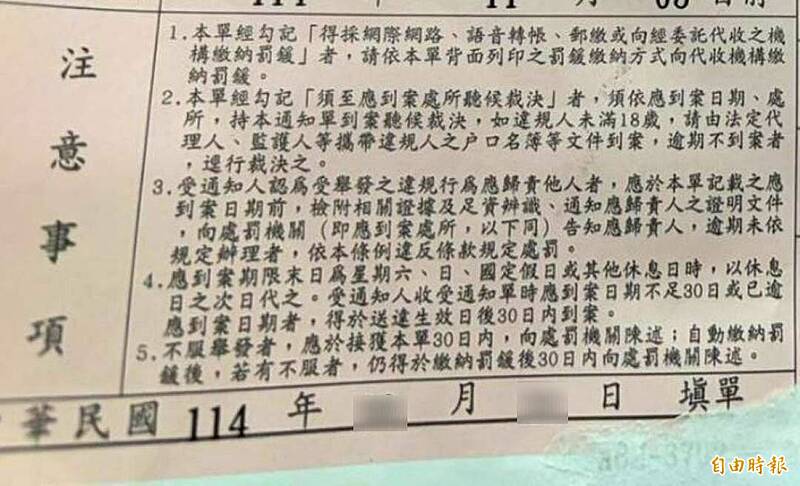 注意事項
1.本單經勾記「得採網際網路、語音轉帳、郵繳或向經委託代收之機
構繳納罰鍰」者，請依本單背面列印之罰鍰繳納方式向代收機構繳
納罰鍰。
2.本單經勾記「須至應到案處所聽候裁決」者，須依應到案日期、處
所，持本通知單到案聽候裁決，如違規人未滿18歲，請由法定代
理人、監護人等攜帶違規人之户口名簿等文件到案，逾期不到案者
，逕行裁決之。
3.受通知人認為受舉發之違規行為應歸責他人者，應於本單記載之應
到案日期前，檢附相關證據及足資辨識、通知應歸責人之證明文件
，向處罰機關（即應到案處所，以下同）告知應歸責人，逾期未依
規定辦理者，依本條例違反條款規定處罰。
4.應到案期限末日為星期六、日、國定假日或其他休息日時，以休息
日之次日代之。受通知人收受通知單時應到案日期不足30日或已逾
應到案日期者，得於送達生效日後30日內到案。
5.不服舉發者，應於接獲本單30日內，向處罰機關陳述；自動繳納罰
鍰後，若有不服者，仍得於繳納罰鍰後30日內向處罰機關陳述。
華民國 114 年 月 日 填單
自由時報